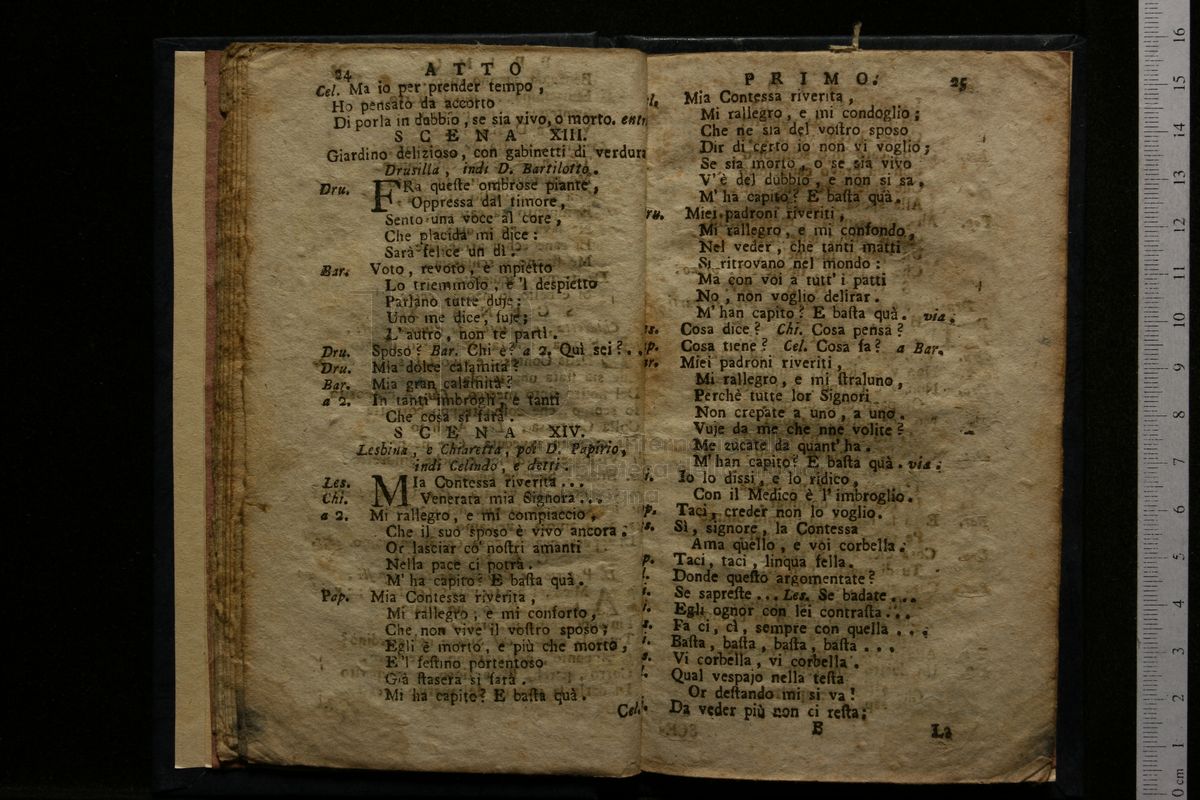 24
A T T O
Cel. Ma io per prender tempo,
Ho pensato da accorto
Di porla in dubbio, se sia vivo, o morto. entr
S C E N A XIII.
Giardino delizioso, con gabinetti di verdura
Drusilla, indi D. Bartilotto.
Dru. FRa queste ombrose piante,
Oppressa dal timore,
Sento una voce al core,
Che placida mi dice:
Sarà felice un dì.
Bar. Voto, revoto, e mpietto
Lo triemmolo, e 'l despietto
Parlano tutte duje:
Uno me dice, fuje;
L'autro, non te partì.
Dru. Sposo? Bar. Chi è? a 2. Quì sei?..
Dru. Mia dolce calamita?
Bar. Mia gran calamita?
a 2. In tanti imbrogli, e tanti
Che cosa si farà.
S C E N A XIV.
Lesbina, e Chiaretta, poi D. Papirio,
indi Celindo, e detti.
Les. MIa Contessa riverita...
Chi. Venerata mia Signora...
a 2. Mi rallegro, e mi compiaccio,
Che il suo sposo è vivo ancora:
Or lasciar co' nostri amanti
Nella pace ci potrà.
M' ha capito? E basta quà.
Pap. Mia Contessa riverita,
Mi rallegro, e mi conforto,
Che non vive il vostro sposo;
Egli è morto, e più che morto,
E 'l festino portentoso
Già stasera si farà.
Mi ha capito? E basta quà.
Cel.
P R I M O.
25
l. Mia Contessa riverita,
Mi rallegro, e mi condoglio;
Che ne sia del vostro sposo
Dir di certo io non vi voglio;
Se sia morto, o se sia vivo
V'è del dubbio, e non si sa,
M' ha capito? E basta quà.
ru. Miei padroni riveriti,
Mi rallegro, e mi confondo,
Nel veder, che tanti matti
Si ritrovano nel mondo:
Ma con voi a tutt' i patti
No, non voglio delirar.
M' han capito? E basta quà. via.
s. Cosa dice? Chi. Cosa pensa?
p. Cosa tiene? Cel. Cosa fa? a Bar.
r. Miei padroni riveriti,
Mi rallegro, e mi straluno,
Perchè tutte lor Signori
Non crepate a uno, a uno.
Vuje da me che nne volite?
Me zucate da quant' ha.
M' han capito? E basta quà. via.
i. Io lo dissi, e lo ridico,
Con il Medico è l' imbroglio.
p. Taci, creder non lo voglio.
s. Sì, signore, la Contessa
Ama quello, e voi corbella.
p. Taci, taci, linqua fella.
l. Donde questo argomentate?
i. Se sapreste... Les. Se badate...
i. Egli ognor con lei contrasta...
s. Fa ci, cì, sempre con quella...
i. Basta, basta, basta, basta...
s. Vi corbella, vi corbella.
l. Qual vespajo nella testa
Or destando mi si va!
Da veder più non ci resta;
B
La